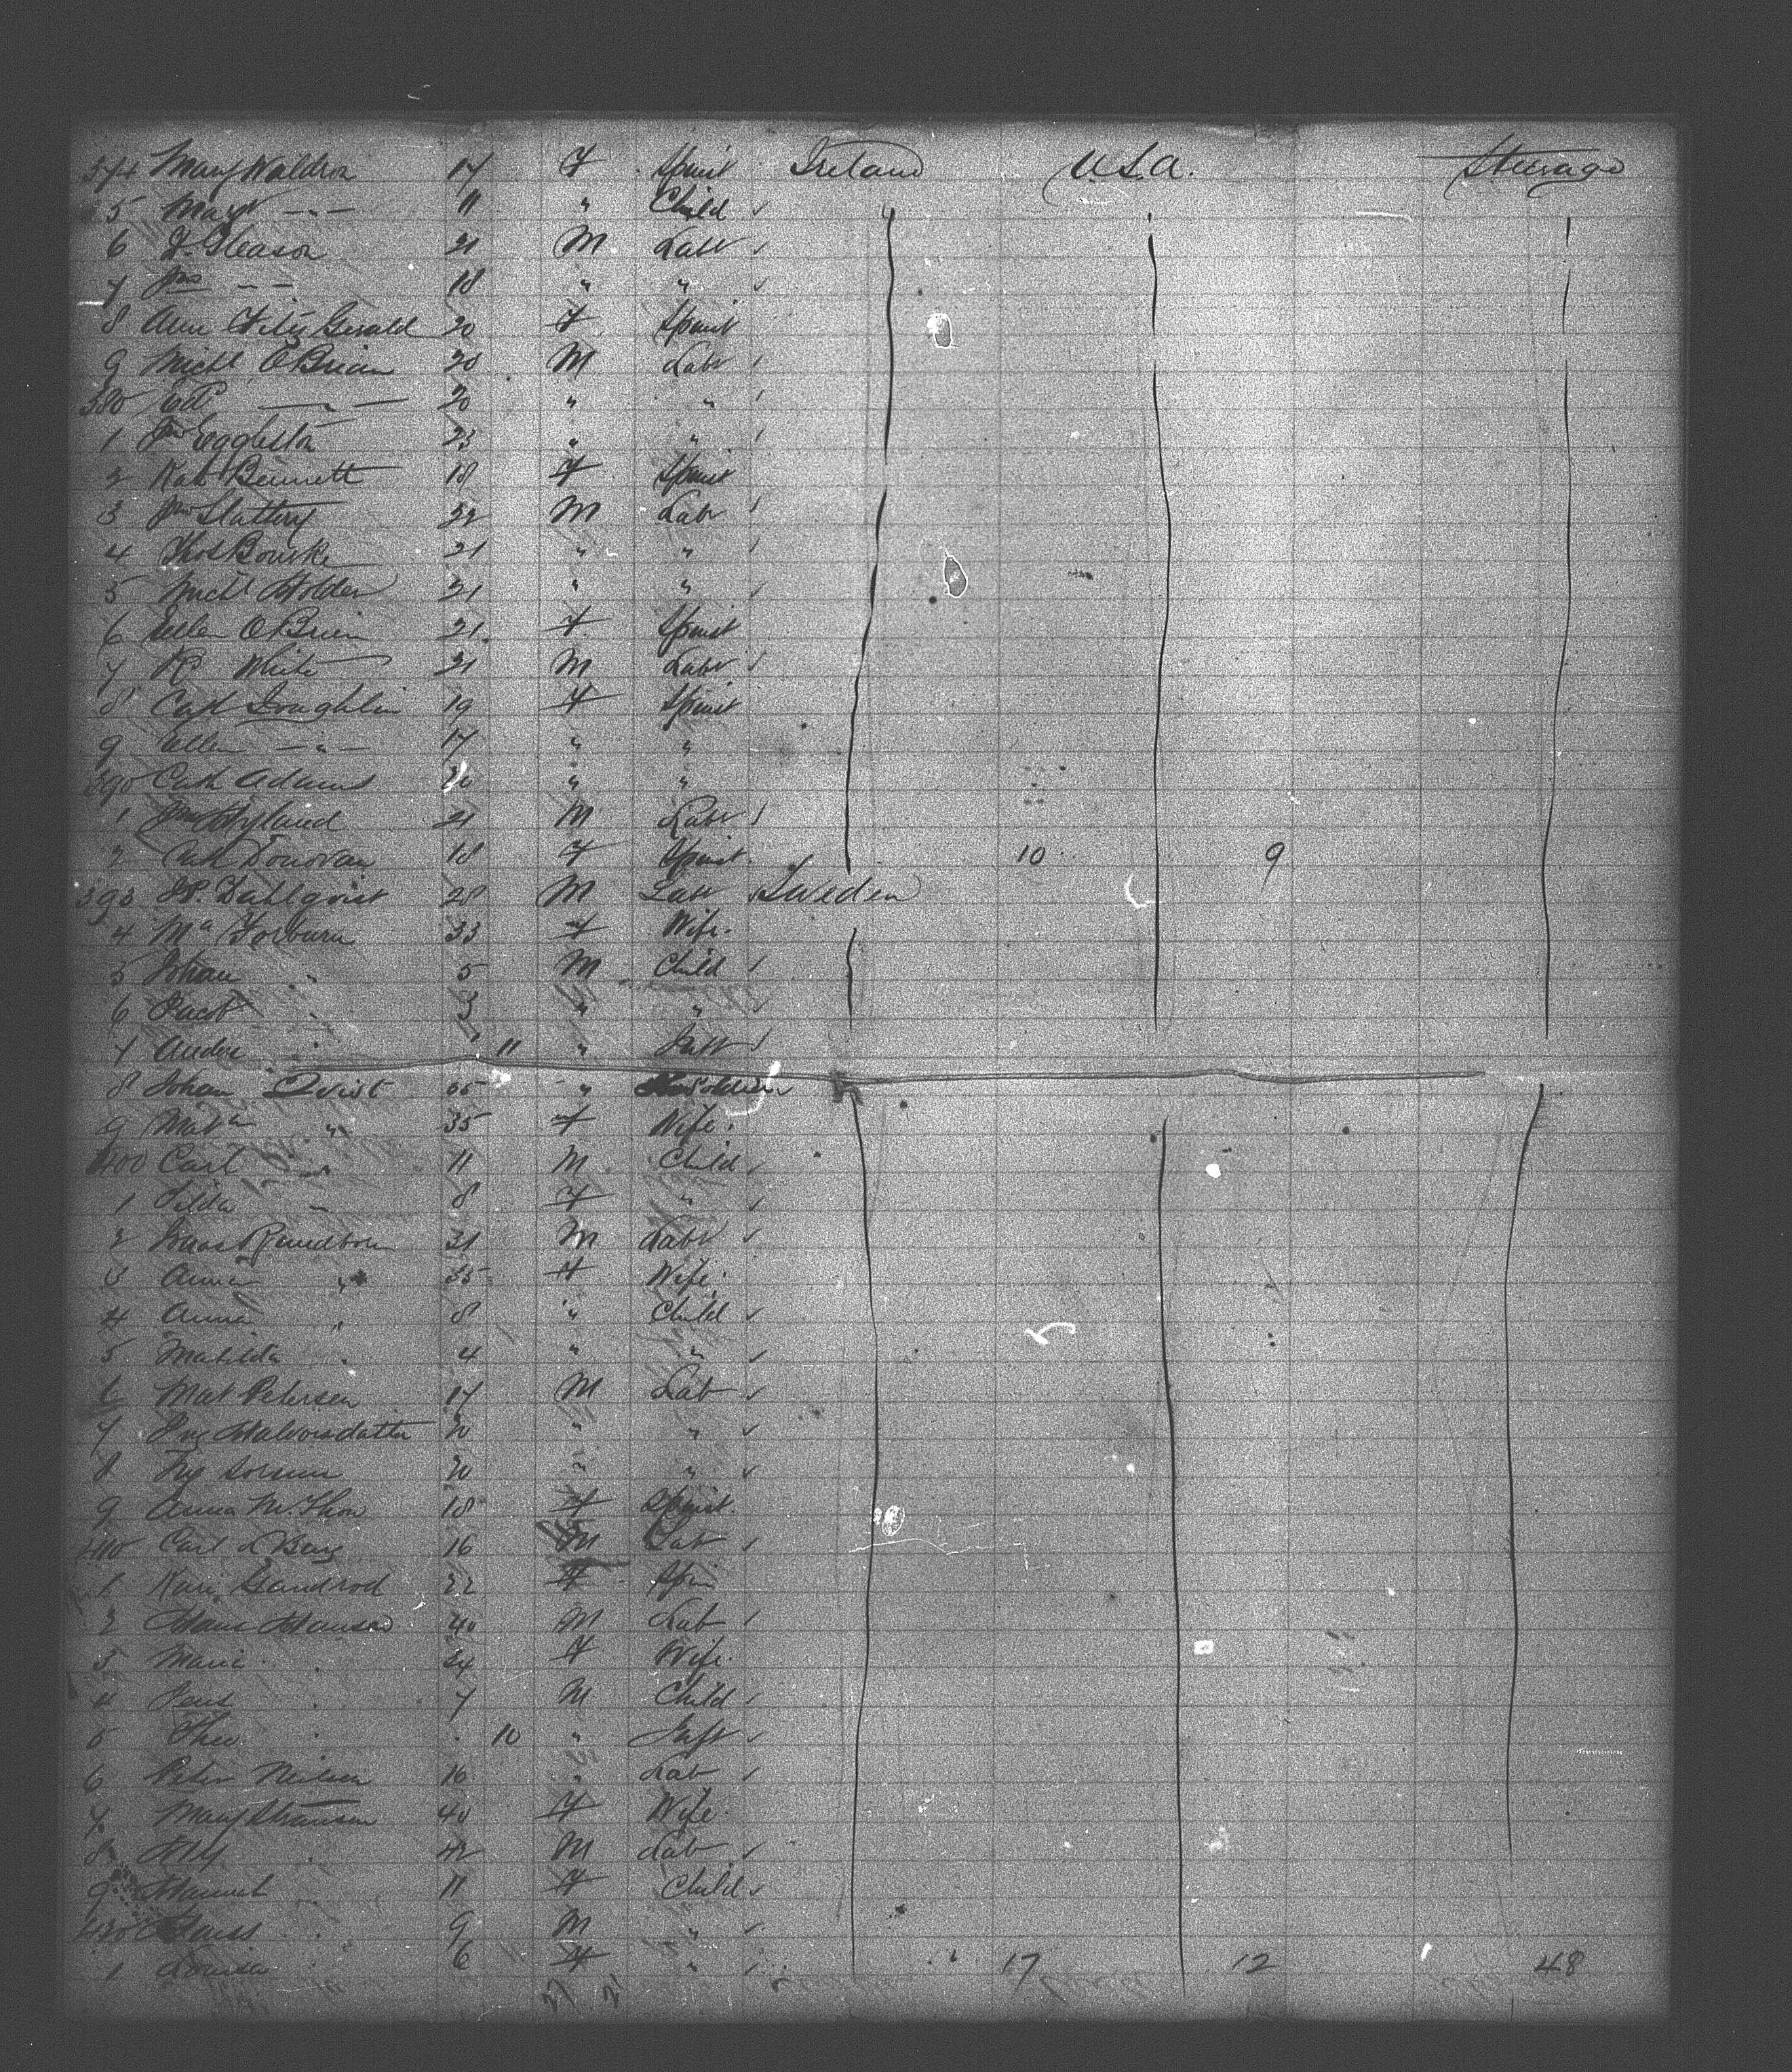 374 Mary Waldron 17 F Spinst Ireland U.S.A. Steerage
5 Mary -"- 11 " Child ✓
6 J. Gleason 21 M Labr ✓
7 Jno - - 18 " " ✓
8 Ann Fitz Gerald 20 F Spinst
9 Michl O'Brien 20 M Labr ✓
380 Pat -"- 20 " " ✓
1 Jno Eggleston 23 " " ✓
2 Kate Bennett 18 F Spinst
3 Jno Slattery 22 M Labr ✓
4 Thos Bourke 21 " " ✓
5 Michl Holden 21 " " ✓
6 Ellen O'Brien 21 F Spinst
7 R White 21 M Labr ✓
8 Cath Loughlin 19 F Spinst
9 Ellen -"- 17 " "
390 Cath Adams 20 " "
1 Jno Hyland 21 M Labr ✓
2 Cath Donovan 18 F Spinst 10 9
393 J P. Dahlqvist 28 M Labr ✓ Sweden
4 Ma Forburn 33 F Wife
5 Johan " 5 M Child ✓
6 Jacob " 3 " " ✓
7 Andre " 11 " Inft ✓
8 Johan Qvist 35 " Soldier ✓
9 Mata " 35 F Wife
400 Carl " 11 M Child ✓
1 Tilda " 8 F " ✓
2 Isaac Rundbom 31 M Labr ✓
3 Anna " 35 F Wife
4 Anna " 8 " Child ✓
5 Matilda " 4 " " ✓
6 Mat Petersen 17 M Lab ✓
7 Ing Halvorsdatter 20 " " ✓
8 20 " " ✓
9 Anna M. Thon 18 F Spinst
410 Carl L Berg 16 M Lab ✓
1 Kari Sandrod 22 F Spin
2 Hans Hansen 40 M Lab ✓
3 Maria " 34 F Wife
4 Jens " 7 M Child ✓
5 Theo " 10 " Inft ✓
6 Peter Neilsen 16 " Lab ✓
7 Mary 40 F Wife
8 " 42 M Lab ✓
9 Hannah " 11 F Child ✓
420 " 9 M " ✓
1 Louisa " 6 F " ✓ 17 12 48
27 21